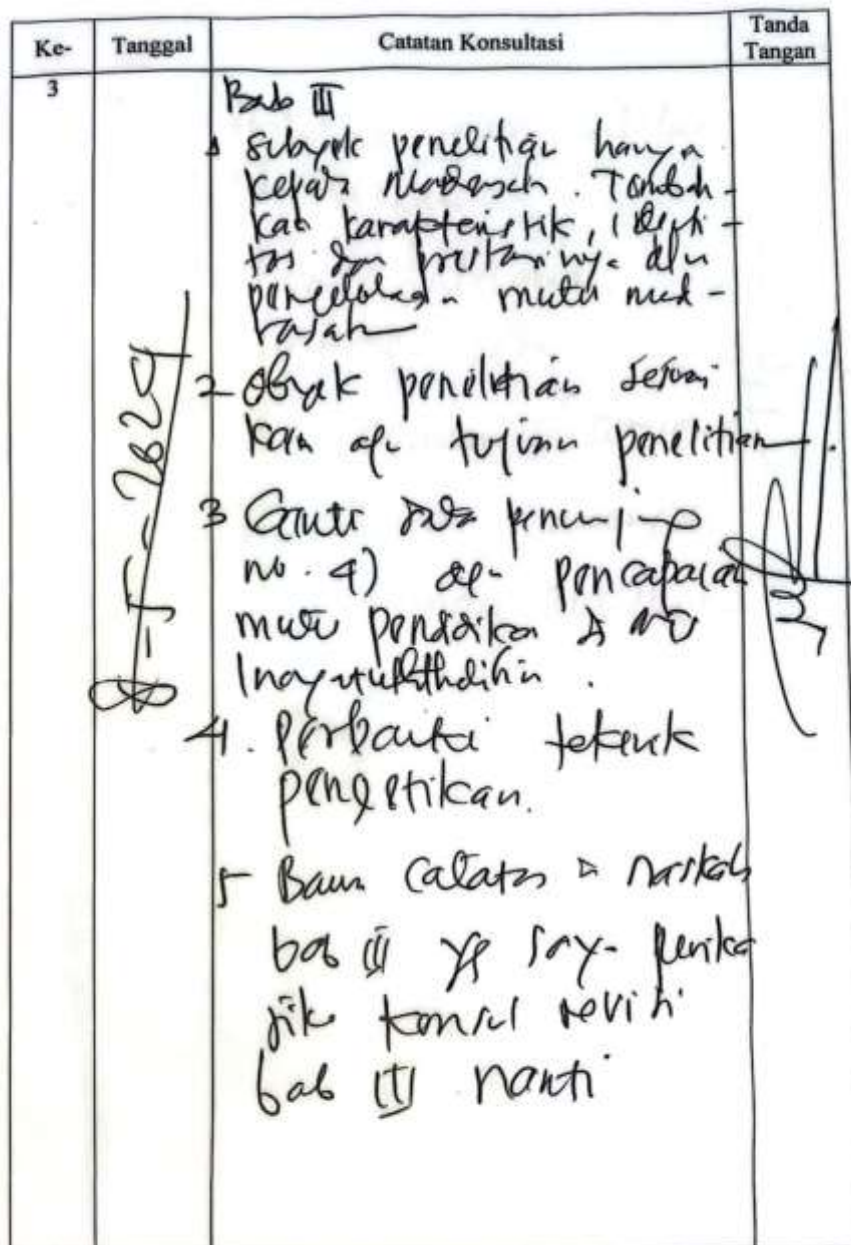 Ke- Tanggal Catatan Konsultasi Tanda Tangan
3
8-5-2024
Bab III
1 Subyek penelitian hanya
kepala madrasah. Tambah-
kan karakteristik, identi-
tas dan prestasinya dlm
pengelolaan mutu mad-
rasah
2 Obyek penelitian sesuai
kan dg tujuan penelitian
3 Ganti data penunjang
no. 4) dg pencapaian
mutu pendidikan di MTs
4. Perbaiki teknik
pengetikan.
5 Bawa catatan & naskah
bab III yg saya periksa
jika konsul revisi
bab III nanti